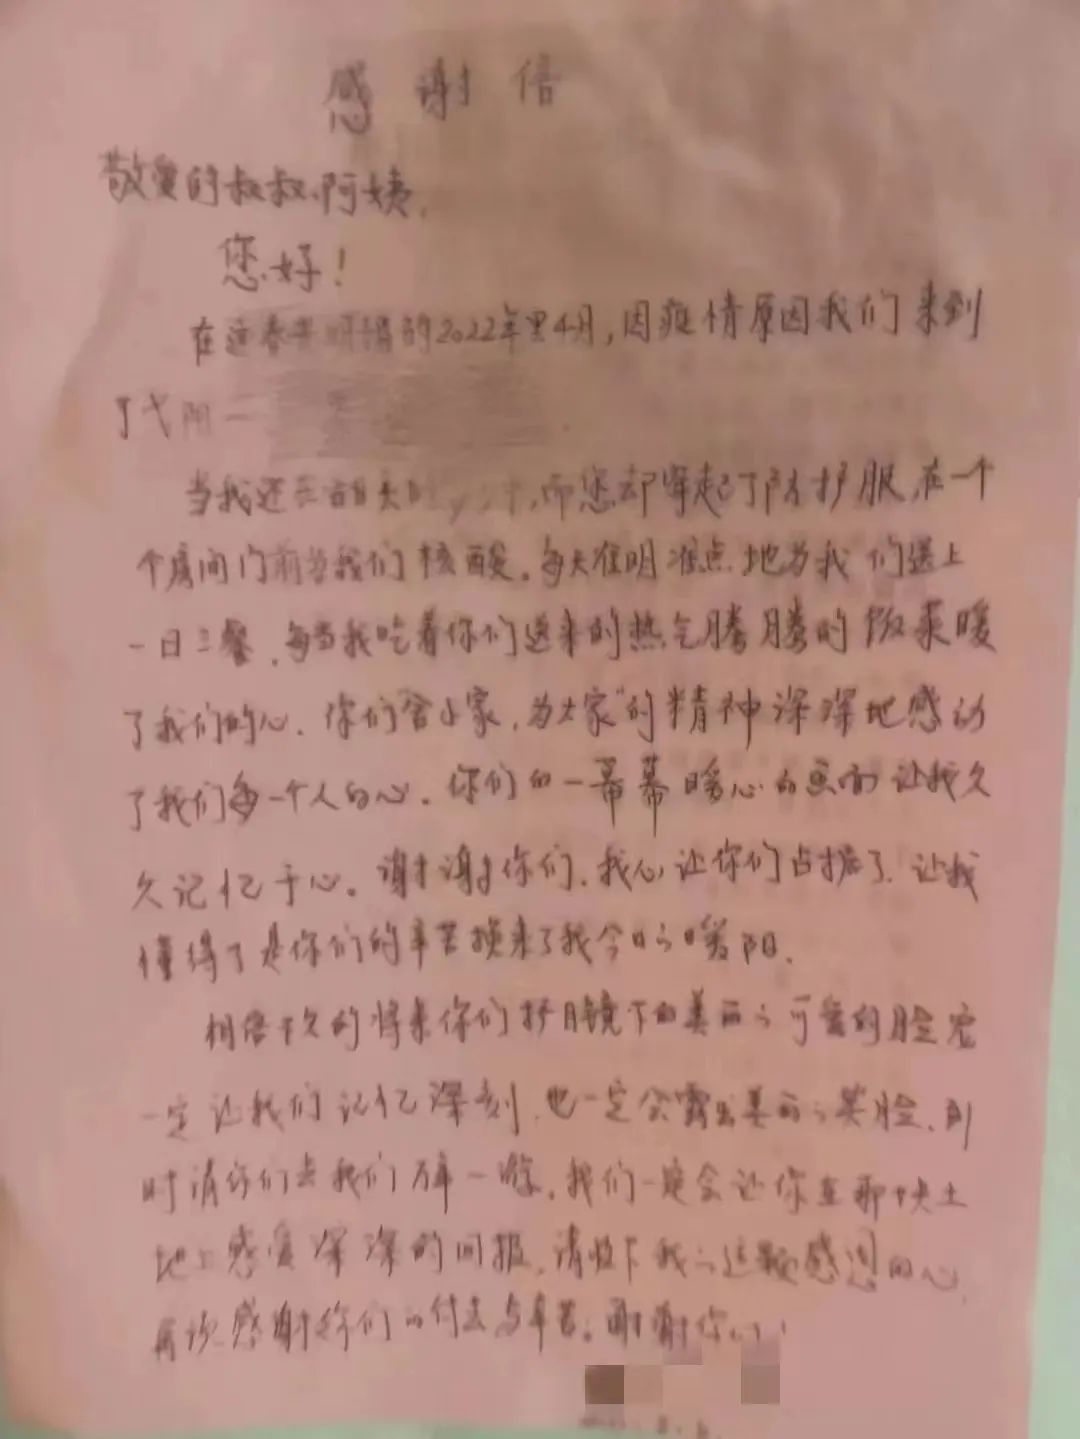 感谢信
敬爱的叔叔、阿姨,
您好!
在这春光明媚的2022年里4月,因疫情原因我们来到
了弋阳一
当我还在,而您却穿起了防护服,在一个
个房间门前为我们核酸。每天准明准点地为我们送上
一日三餐,每当我吃着你们送来的热气腾腾的饭菜暖
了我们的心.你们"舍小家,为大家"的精神深深地感动
了我们每一个人的心.你们的一幕幕暖心的画面让我久
久记忆于心。谢谢你们.我心让你们占据了.让我
懂得了是你们的辛苦换来了我今日的暖阳.
相信不久的将来你们护目镜下的美丽的可爱的脸容
一定让我们记忆深刻.也一定会露出美丽的笑脸.到
时请你们去我们万年一游.我们一定会让你在那块土
地上感受深深的回报.请收下我的这颗感恩的心,
再次感谢你们的付出与辛苦。谢谢你们!